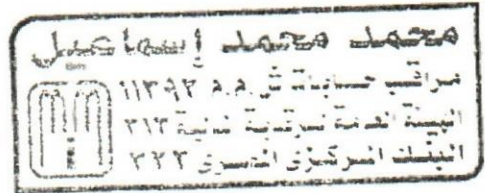 محمد محمد إسماعيل
مراقب حسابات س.م.م ١١٣٩٢
الهيئة العامة للرقابة المالية ٢١٣
البنك المركزى المصرى ٢٣٣